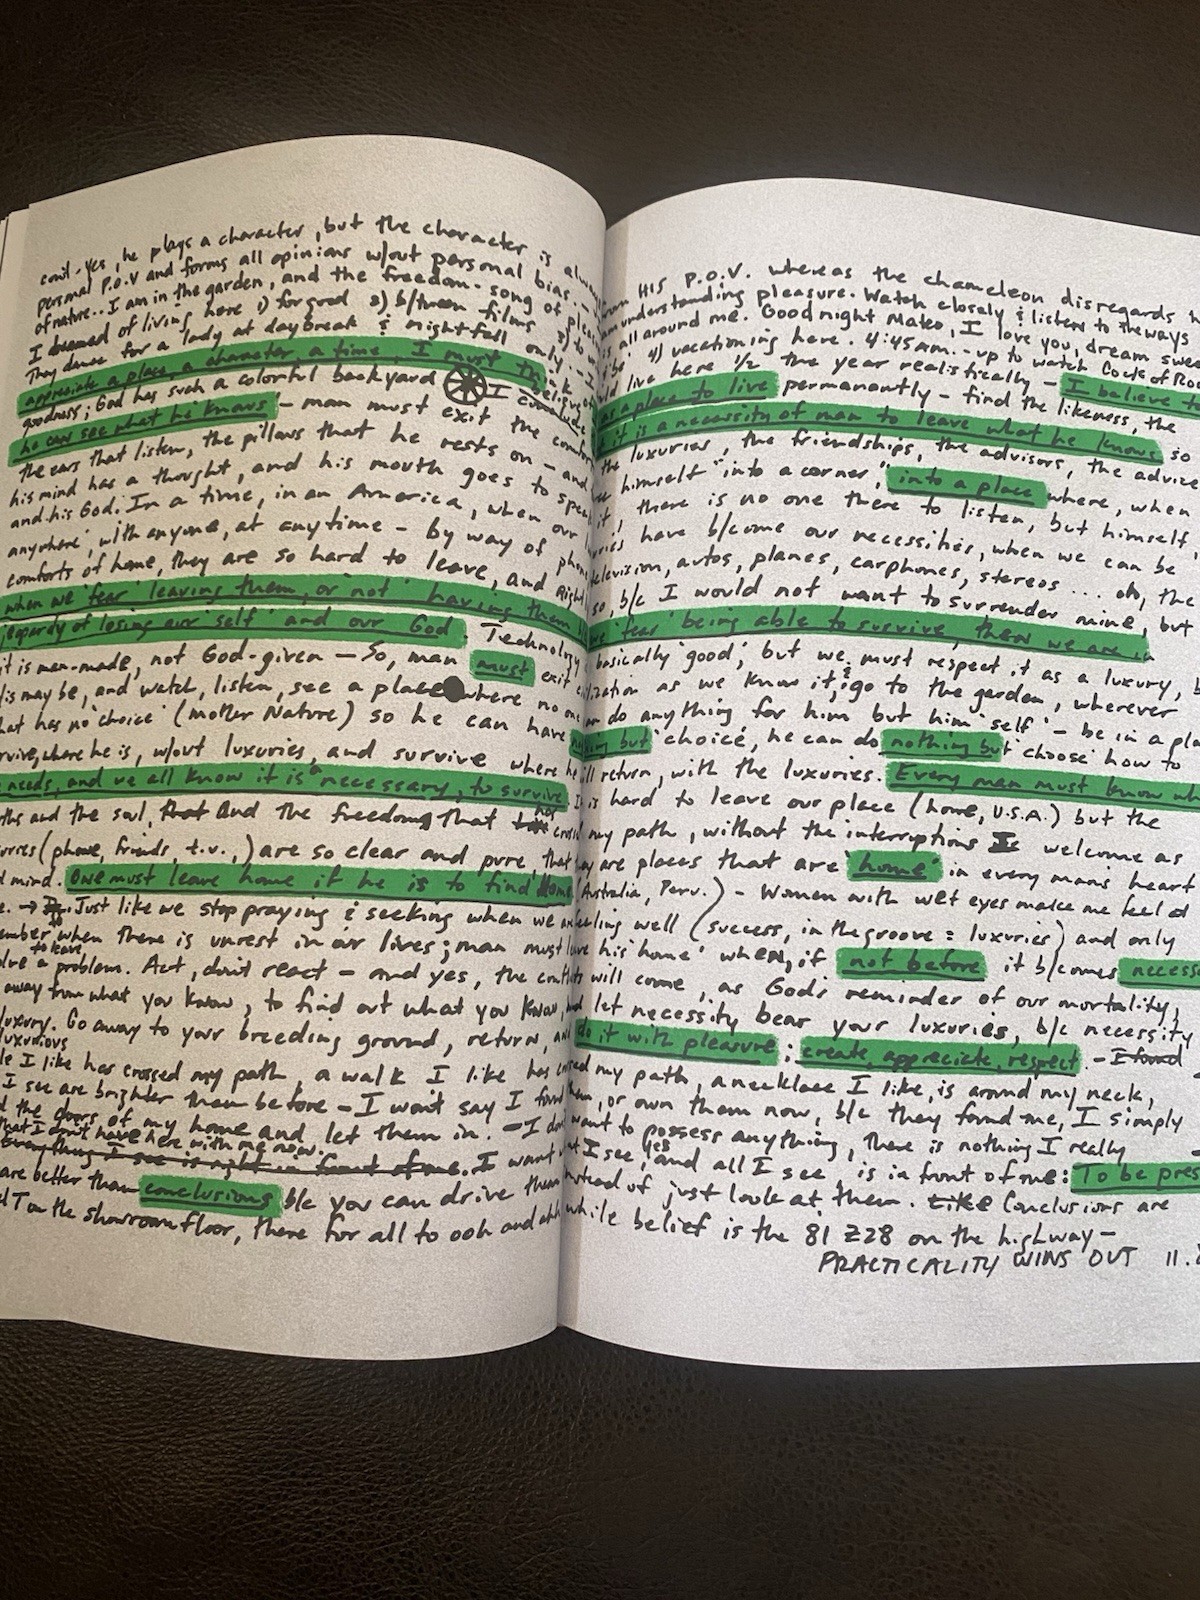 cont-yes, he plays a character, but the character is always
personal P.O.V and forms all opinions w/out personal bias.
of nature.. I am in the garden, and the freedom-song of
I dreamed of living here 1) for good 2) b/tween films 3) to
They dance for a lady at daybreak & nightfall only..
appreciate a place, a character, a time, I must
goodness; God has such a colorful backyard I
he can see what he knows - man must exit the
the ears that listen, the pillows that he rests on - and
his mind has a thought, and his mouth goes to speak
and his God. In a time, in an America, when our
anywhere', with anyone, at anytime - by way of phone
comforts of home, they are so hard to leave, and Right
when we 'fear' leaving them, or 'not' having them
jeopardy of losing our 'self' and our God. Technology
it is man-made, not God-given - So, man must exit
is may be, and watch, listen, see a place where no one
that has no 'choice' (Mother Nature) so he can have
survive, where he is, w/out luxuries, and survive where he
needs, and we all know it is necessary, to survive.
and the soul, that And the freedom That has
(phone, friends, t.v.,) are so clear and pure, that
mind. One must leave home if he is to find Home
Just like we stop praying & seeking when we are
when there is unrest in our lives; man must leave
to leave
a problem. Act, don't react - and yes, the conflicts
away from what you know, to find out what you know, and
luxury. Go away to your breeding ground, return, and
luxurious
I like has crossed my path, a walk I like has crossed
I see are brighter than before - I won't say I found
the doors of my home and let them in. - I don't
that I don't have here with me now.
Everything I see is right in front of me. I want
are better than conclusions b/c you can drive them
on the showroom floor, there for all to ooh and ahh
from HIS P.O.V. whereas the chameleon disregards
understanding pleasure. Watch closely & listen to the ways
is all around me. Good night Mako, I love you, dream
4) vacationing here. 4:45 AM. - up to watch Cocks of Rock
live here 1/2 the year realistically - I believe
as a place to live permanently - find the likeness, the
it is a necessity of man to leave what he knows so
the luxuries, the friendships, the advisors, the advice
himself "into a corner," into a place where, when
it, there is no one there to listen, but himself,
have b/come our necessities, when we can be
television, autos, planes, carphones, stereos ... oh, the
so, b/c I would not want to surrender mine, but
'fear' being able to survive, then we are in
basically 'good', but we must respect it as a luxury,
as we know it, & go to the garden, wherever
do anything for him but him 'self' - be in a
but 'choice', he can do nothing but 'choose' how to
return, with the luxuries. Every man must know
is hard to leave our place (home, U.S.A.) but the
my path, without the interruptions I welcome as
are places that are 'home' in every man's heart
Australia, Peru.) - Women with wet eyes make me feel
feeling well (success, in the groove = luxuries) and only
his 'home' when, if not before it b/comes
will come, as God's reminder of our mortality,
let necessity bear your luxuries, b/c necessity
do it with pleasure; create, appreciate, respect. - I found
my path, a necklace I like, is around my neck,
or own them now, b/c they found me, I simply
want to possess anything, there is nothing I really
I see, yes and all I see is in front of me: To be
instead of just look at them. Like Conclusions are
while belief is the 81 Z28 on the highway -
PRACTICALITY WINS OUT 11.